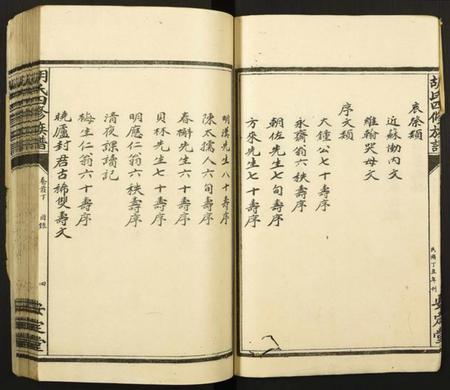 胡氏四修族譜
民國丁丑年刊
安定堂
哀祭類
近蘇慟內文
維翰哭母文
序文類
大鐘公七十壽序
永齋翁六秩壽序
朝佐先生七旬壽序
方來先生七十壽序
明漢先生八十壽序
陳太孺人六旬壽序
春榭先生六十壽序
貝林先生七十壽序
明應仁翁六秩壽序
清夜課讀記
梅生仁翁六十壽序
曉廬封君古稀雙壽文
胡氏四修族譜
卷首下
目錄
四
安定堂